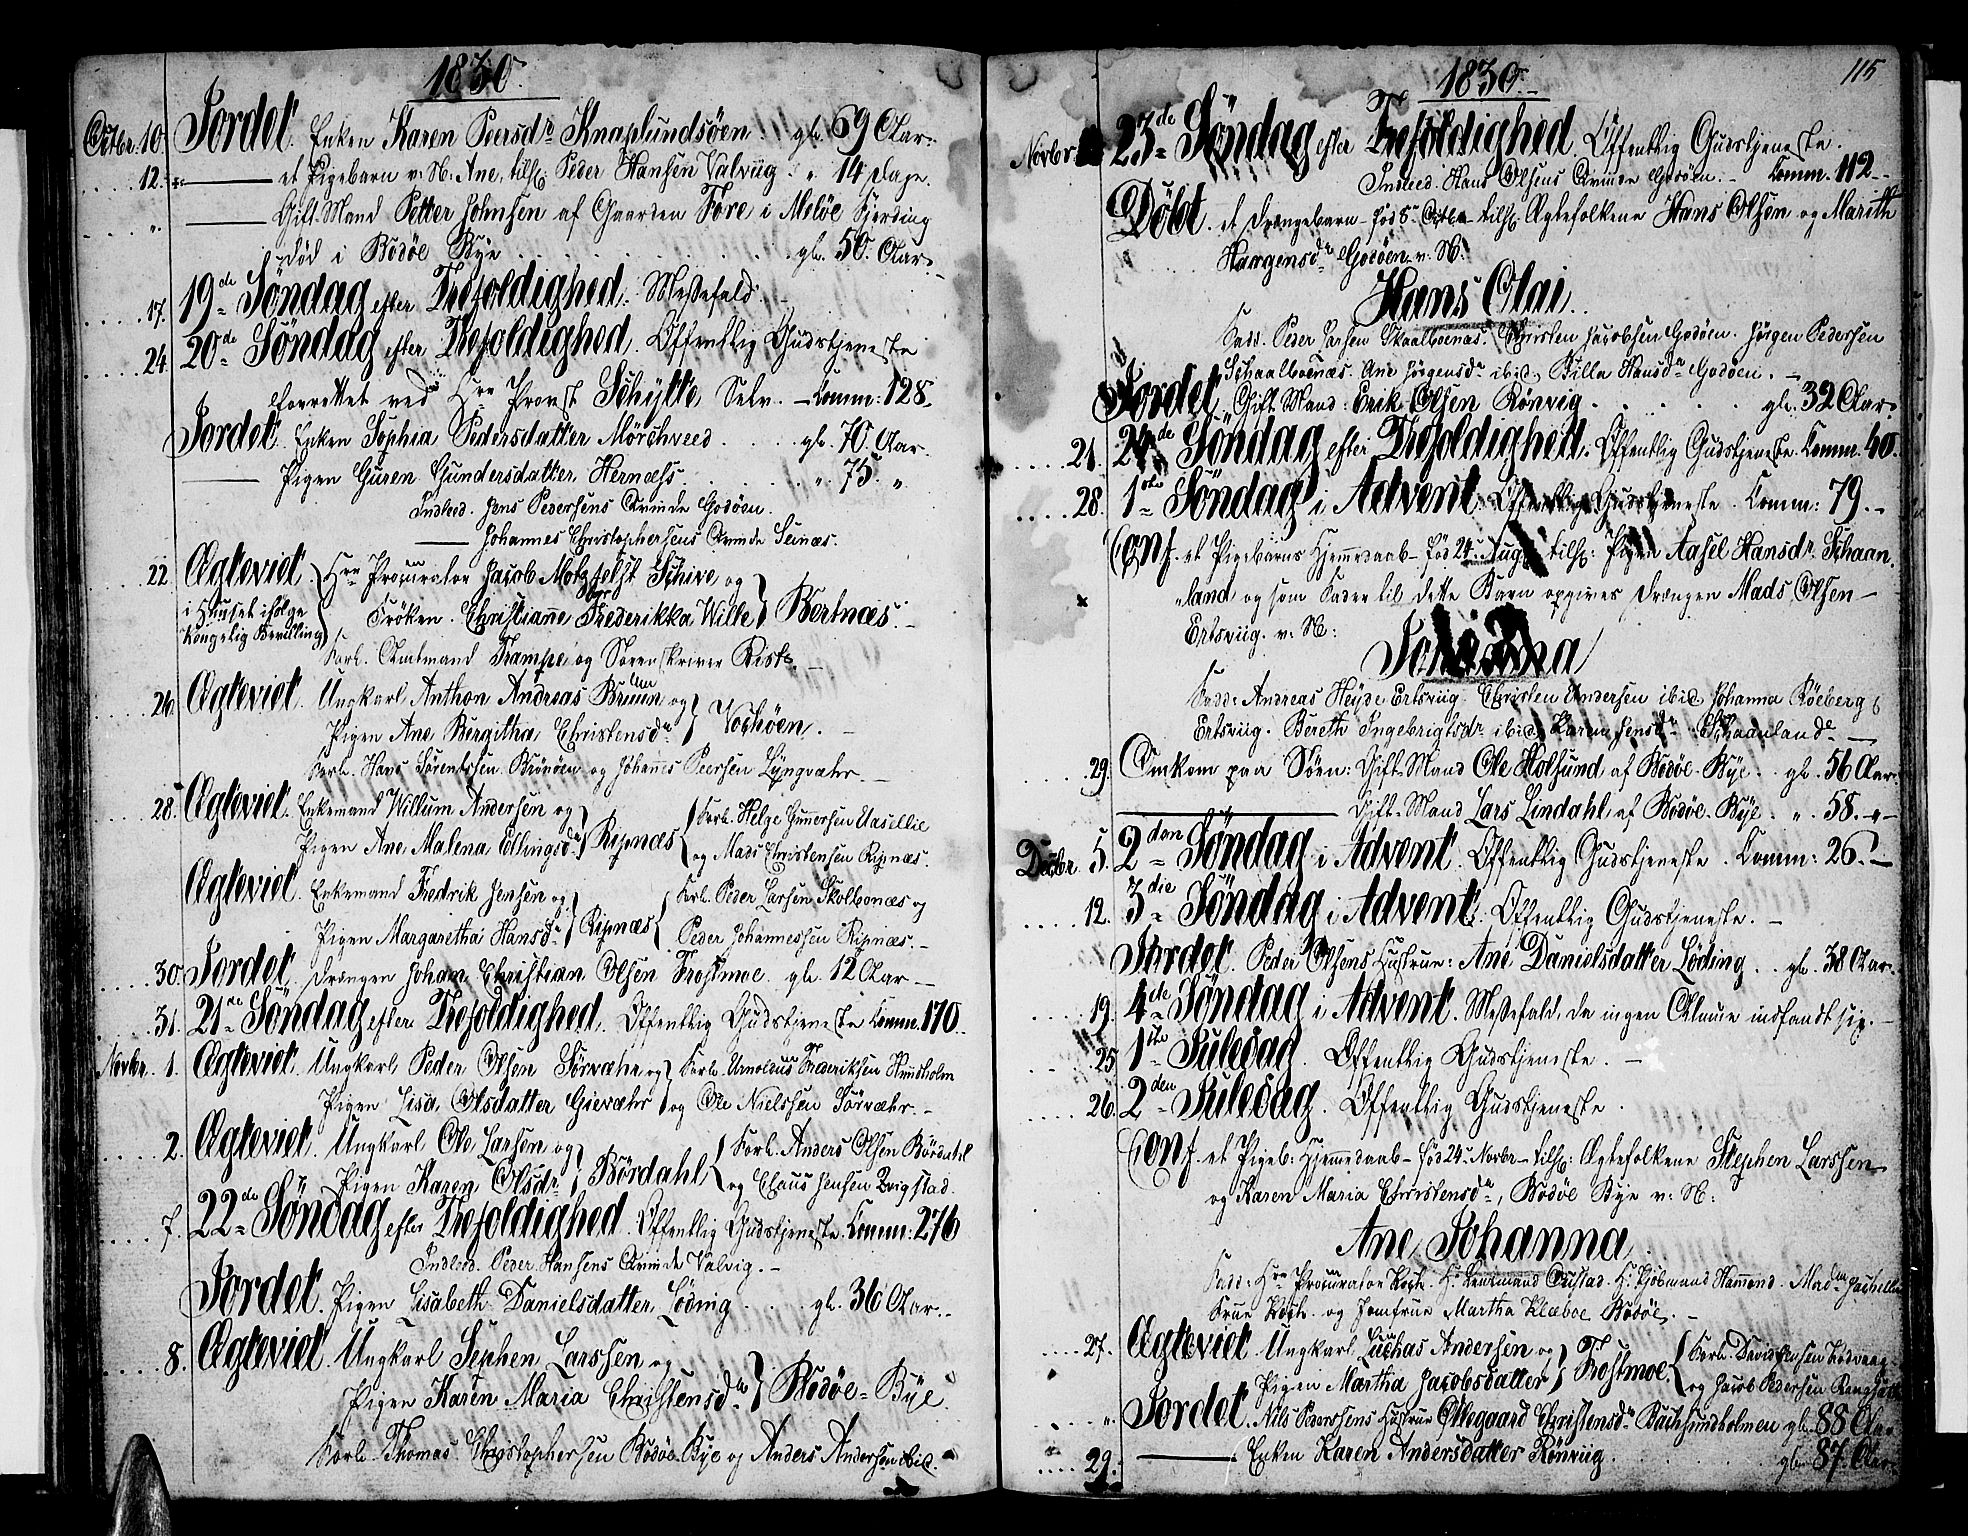 1830.
Octbr. 10. Jordet. Enken Karen Peersdr Knaplundsöen . gl. 69 Aar.
12. — et Pigebarn v: N: Ane, tilh: Peder Hansen Valviig . " 14 Dage.
" — Gift-Mand Petter Johnsen af Gaarden Fore i Meløe Fjerding
død i Bodöe Bye . . . gl. 50. Aar.
17. 19de Søndag efter Trefoldighed. Messefald. —
24. 20de Søndag efter Trefoldighed. Offentlig Gudstjeneste
forrettet ved Hrr Provst Schytte Selv. — Comm: 128.
Jordet. Enken Sophia Pedersdatter Mörchveed . . . gl. 70. Aar.
— Pigen Guren Gundersdatter Hernæss . . . " 75. "
Indleed. Jens Pedersens Qvinde Godöen.
— Johannes Christophersens Qvinde Seinæs.
22. Ægteviet Hrr Procurator Jacob Motzfeldt Schive og
i Huuset ifölge
Fröken. Christianne Frederikka Wille } Bertnæs. —
Kongelig Bevilling
Forl. Amtmand Trampe og Sorenskriver Rist. —
24. Ægteviet. Ungkarl Anthon Andreas Bruun og
Pigen Ane Bergitha Christensdr } Voehöen. —
Forl. Hans Sörentssen Brönöen og Johannes Peersen Lyngvæhr. —
28. Ægteviet. Enkemand Willum Andersen og
Pigen Ane Malena Ellingsdr } Ripnæs { Forl. Helge Gunnersen Vasellie
og Mads Christensen Ripnæs.
Ægteviet. Enkemand Fredrik Jensen og
Pigen Margaretha Hansdr } Ripnæs { Forl. Peder Larsen Skolbonæs og
Peder Johannessen Ripnæs. —
30. Jordet. Drængen Johan Christian Olsen Trostmoe gl. 12 Aar —
31. 21de Søndag efter Trefoldighed. Offentlig Gudstjeneste Comm. 170.
Novbr. 1. Ægteviet. Ungkarl Peder Olsen Sörvæhr og } Forl. Arnoldus Frederiksen Hundholm
Pigen Lisa Olsdatter Gievæhr } og Ole Nielssen Sörvæhr. —
2. Ægteviet. Ungkarl Ole Larsen og
Pigen Karen Olsdr } Bördahl { Forl. Anders Olsen Bördahl
og Claus Jensen Qvigstad.
7. 22de Søndag efter Trefoldighed. Offentlig Gudstjeneste. Comm: 276
Indleed. Peder Hansens Qvinde Valvig. —
Jordet. Pigen Lisabeth Danielsdatter Löding . . . gl. 36 Aar. —
8. Ægteviet Ungkarl Sephen Larssen og
Pigen Karen Maria Christensdr } Bodöe-Bye.
Forl. Thomas Christophersen Bodöe Bye og Anders Andersen ibid.
1830. —
115
Novbr 23de Søndag efter Trefoldighed Offentlig Gudstjeneste.
Indleed. Hans Olsens Qvinde Godöen. — Comm. 112. —
Döbt. et Drængebarn — fød 5te Octbr — tilh: Ægtefolkene Hans Olsen og Marith
Hansgensdr Godöen. v: N:
Hans Olai.
Fadd. Peder Larsen Skaalboenæs. Christen Jacobsen Godöen. Jörgen Pedersen
Schaalboenæs. Ane Jörgensdr ibid. Billa Hansdr Godöen. —
Jordet. Gift Mand: Erik Olsen Rönvig . . . gl. 32 Aar.
21. 24de Søndag efter Trefoldighed. Offentlig Gudstjeneste Comm. 40.
28. 1ste Søndag i Advent. Offentlig Gudstjeneste. Comm: 79. —
Conf. et Pigebarns Hjemmedaab — fød 24. Aug. tilh: Pigen Aasel Hansdr. Schaan-
land og som Fader til dette Barn opgives Drængen Mads Olsen —
Ertsviig. v: N:
Johanna
Fadd: Andreas Heyde Ertsviig. Christen Andersen ibid Johanna Röeberg
Ertsviig. Bereth Ingebrigtsdr ibid. Karen Jensdr Schaanland —
29. Omkom paa Söen: Gift-Mand Ole Holsund af Bodöe-Bye . . gl. 56 Aar.
— Gift-Mand Lars Lindahl af Bodöe-Bye . " 58. " —
Decbr. 5. 2den Søndag i Advent. Offentlig Gudstjeneste. Comm: 26. —
12. 3die Søndag i Advent. Offentlig Gudstjeneste. —
Jordet. Peder Olsens Hustrue: Ane Danielsdatter Löding . . gl. 38 Aar.
19. 4de Søndag i Advent. Messefald, da ingen Almue indfandt sig. —
25. 1ste Juledag. Offentlig Gudstjeneste. —
26. 2den Juledag. Offentlig Gudstjeneste.
Conf. et Pigeb: Hjemmedaab — fød 24. Novbr — tilh: Ægtefolkene Stephen Larssen
og Karen Maria Christensdr, Bodöe Bye v: N:
Ane Johanna.
Fadd: Hrr Procurator Koch. H: Leutmand H: Kjöbmand Hammond. Madm
Frue Koch. og Jomfrue Martha Klæboe Bodöe. —
27. Ægteviet Ungkarl Luchas Andersen og
Pigen Martha Jacobsdatter } Trostmoe { Forl. David Jensen
og Jacob Pedersen
" Jordet. Nils Peerssens Hustrue Ollegaard Christensdr Bachsundholmen gl. 88 Aar
29. — Enken Karen Andersdatter Rönviig . . . gl. 87. Aar.